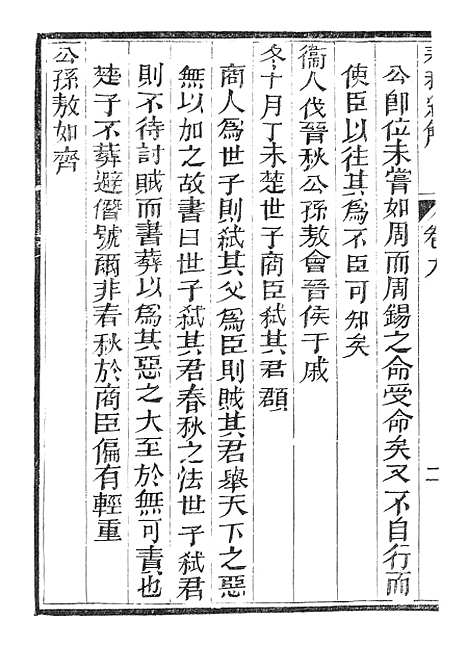 卷九
二
公卽位未嘗如周而周錫之命受命矣又不自行而
使臣以往其爲不臣可知矣
衞人伐晉秋公孫敖會晉侯于戚
冬十月丁未楚世子商臣弑其君頵
商人爲世子則弑其父爲臣則賊其君舉天下之惡
無以加之故書曰世子弑其君春秋之法世子弑君
則不待討賊而書葬以爲其惡之大至於無可責也
楚子不葬避僭號爾非春秋於商臣偏有輕重
公孫敖如齊